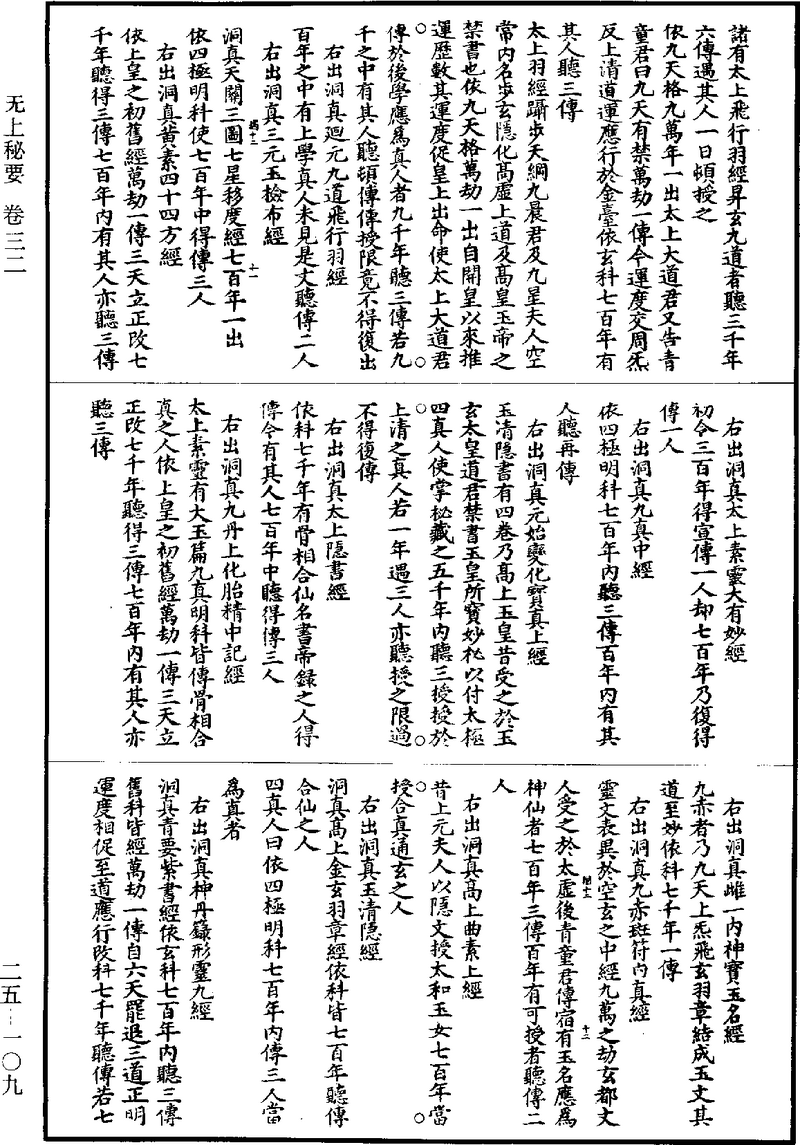 无上秘要　卷三二
諸有太上飛行羽經昇玄九道者聽三千年
六傳遇其人一日頓授之
依九天格九萬年一出太上大道君又告青
童君曰九天有禁萬劫一傳今運度交周炁
反上清道運應行於金臺依玄科七百年有
其人聽三傳
太上羽經躡步天綱九晨君及九星夫人空
常內名步玄隱化高虛上道及高皇玉帝之
禁書也依九天格萬劫一出自開皇以來推
運歷數其運度促皇上出命使太上大道君
傳於後學應為真人者九千年聽三傳若九
千之中有其人聽頓傳傳授限竟不得復出
右出洞真廻元九道飛行羽經
百年之中有上學真人未見是文聽傳二人
右出洞真三元玉檢布經
洞真天關三圖七星移度經七百年一出
十一
依四極明科使七百年中得傳三人
右出洞真黃素四十四方經
依上皇之初舊經萬劫一傳三天立正改七
千年聽得三傳七百年內有其人亦聽三傳
右出洞真太上素靈大有妙經
初令三百年得宣傳一人却七百年乃復得
傳一人
右出洞真九真中經
依四極明科七百年內聽三傳百年內有其
人聽再傳
右出洞真元始變化寶真上經
玉清隱書有四卷乃高上玉皇昔受之於玉
玄太皇道君禁書玉皇所寶妙祕以付太極
四真人使掌祕藏之五千年內聽三授授於
上清之真人若一年遇三人亦聽授之限過
不得復傳
右出洞真太上隱書經
依科七千年有骨相合仙名書帝錄之人得
傳令有其人七百年中聽得傳三人
右出洞真九丹上化胎精中記經
太上素靈有大玉篇九真明科皆傳骨相合
真之人依上皇之初舊經萬劫一傳三天立
正改七千年聽得三傳七百年內有其人亦
聽三傳
右出洞真雌一內神寶玉名經
九赤者乃九天上炁飛玄羽章結成玉文其
道至妙依科七千年一傳
右出洞真九赤斑符內真經
靈文表異於空玄之中經九萬之劫玄都丈
十二
人受之於太虛後青童君傳宿有玉名應為
神仙者七百年三傳百年有可授者聽傳二
人
右出洞真高上曲素上經
昔上元夫人以隱文授太和玉女七百年當
授合真通玄之人
右出洞真玉清隱經
洞真高上金玄羽章經依科皆七百年聽傳
合仙之人
四真人曰依四極明科七百年內傳三人當
為真者
右出洞真神丹籙形靈九經
洞真青要紫書經依玄科七百年內聽三傳
舊科皆經萬劫一傳自六天罷退三道正明
運度相促至道應行改科七千年聽傳若七
二五－一〇九